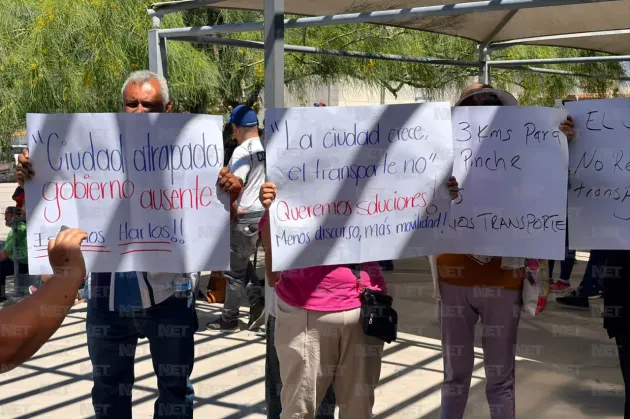 "Ciudad atrapada
gobierno ausente"
Estamos Hartos!!
"La ciudad crece,
el transporte no"
Queremos soluciones
Menos discurso, más movilidad!!
3 Kms Para
Pinche
TRANSPORTE
El
No Re
transp
NET